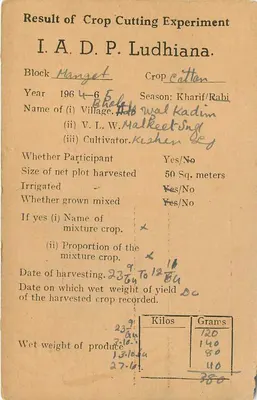 Result of Crop Cutting Experiment
I. A. D. P. Ludhiana.
Block Mangat Crop Cottan
Year 1964-65 Season: Kharif/Rabi
Name of (i) Village. Wal Kadim
(ii) V. L. W. Malkeet Sng
(iii) Cultivator. Kishen Sg
Whether Participant Yes/No
Size of net plot harvested 50 Sq. meters
Irrigated Yes/No
Whether grown mixed Yes/No
If yes (i) Name of
mixture crop. x
(ii) Proportion of the
mixture crop. x
Date of harvesting. 23 9/64 To 12 10/64
Date on which wet weight of yield Do
of the harvested crop recorded.
Kilos Grams
120
140
Wet weight of produce 80
40
380